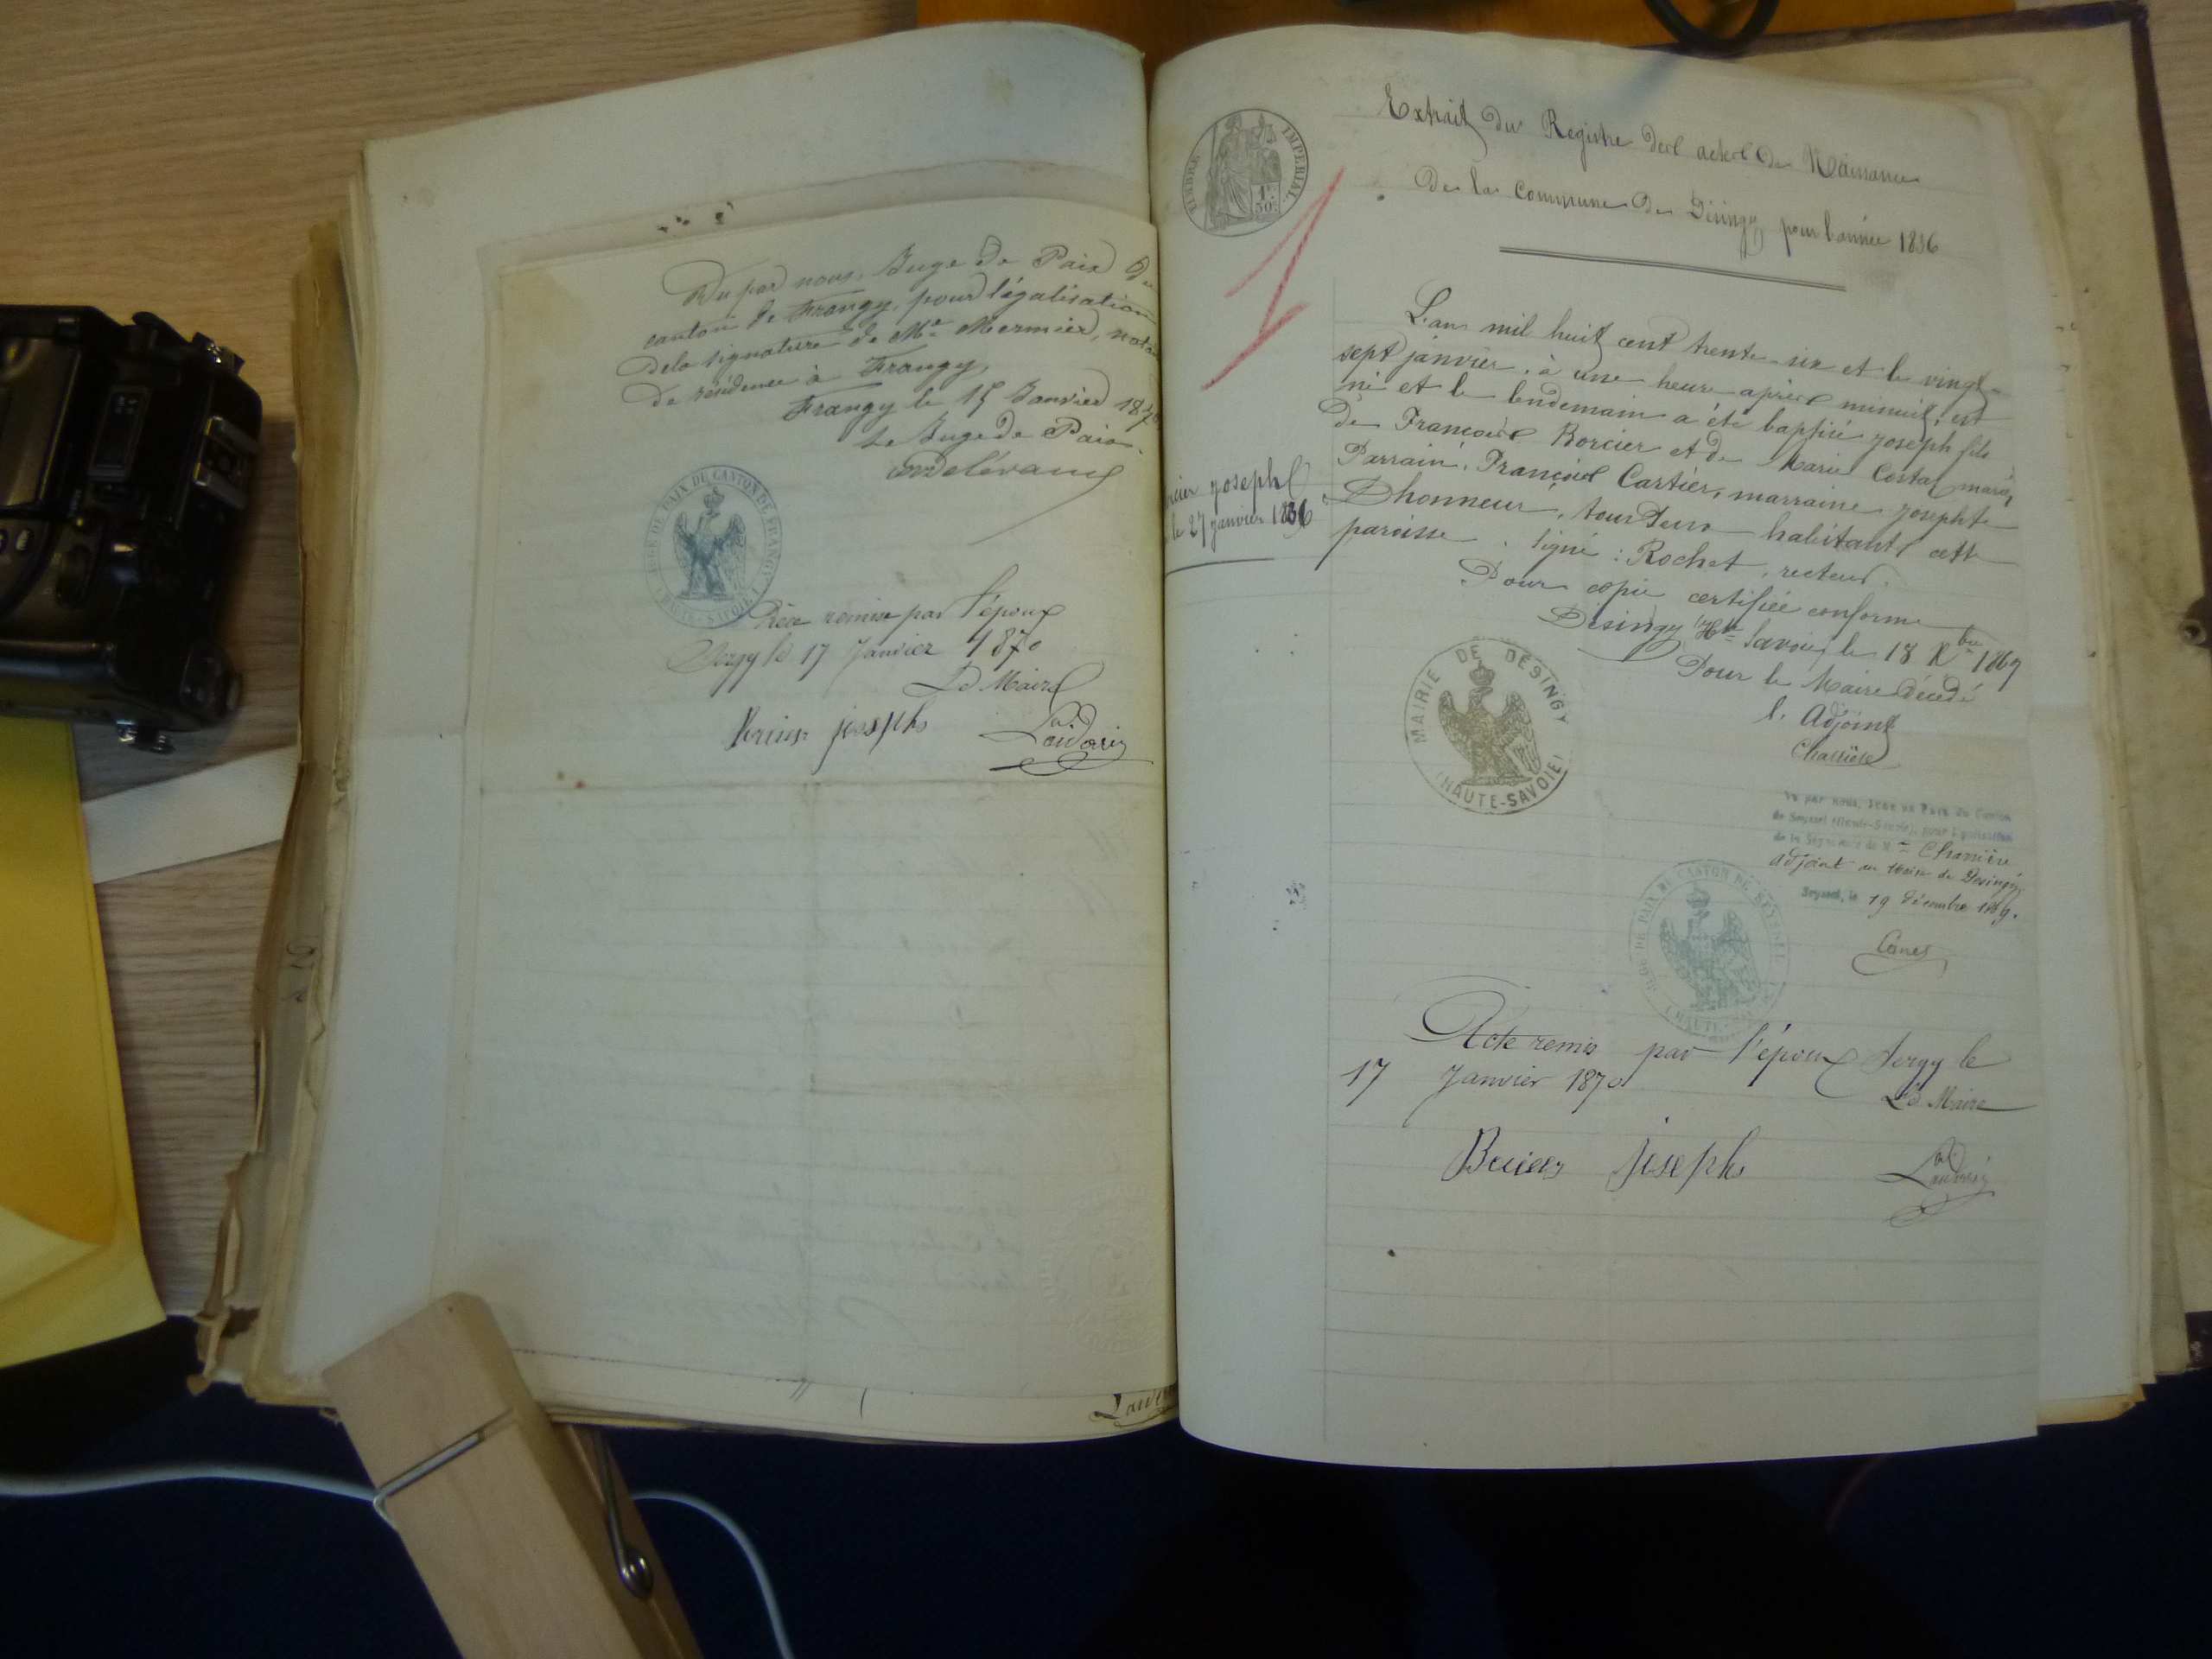 Vu par nous, Juge de Paix du
canton de Frangy, pour légalisation
de la signature de Me Mermier, notai
de résidence à Frangy,
Frangy le 15 Janvier 1870
Le Juge de Paix.
JUGE DE PAIX DU CANTON DE FRANGY
(HAUTE-SAVOIE)
Pièce remise par l'époux
Sergy le 17 Janvier 1870
Le Maire
joseph
TIMBRE IMPERIAL
1F 50C
1
Extrait du Registre des actes de Naissance
De la Commune de Désingy pour l'année 1836
L'an mil huit cent trente-six et le vingt-
sept janvier, à une heure après minuit, est
né et le lendemain a été baptisé joseph fils
De François Borcier et de Marie Costaz mariés,
Parrain, François Cartier, marraine josephte
Dhonneur, tous deux habitants cette
paroisse. Signé : Rochet, recteur.
rcier joseph
le 27 janvier 1836
Pour copie certifiée conforme
Désingy (Hte Savoie) le 18 Xbre 1869
Pour le Maire décédé
l'Adjoint
Charrière
MAIRIE DE DÉSINGY
(HAUTE-SAVOIE)
Vu par nous, Juge de Paix du Canton
de Seyssel (Haute-Savoie), pour légalisation
de la Signature de Mr Charrière
adjoint au Maire de Desingy
Seyssel, le 19 Décembre 1869.
JUGE DE PAIX DU CANTON DE SEYSSEL
(HAUTE-
Acte remis par l'époux Sergy le
17 Janvier 1870
Le Maire
joseph